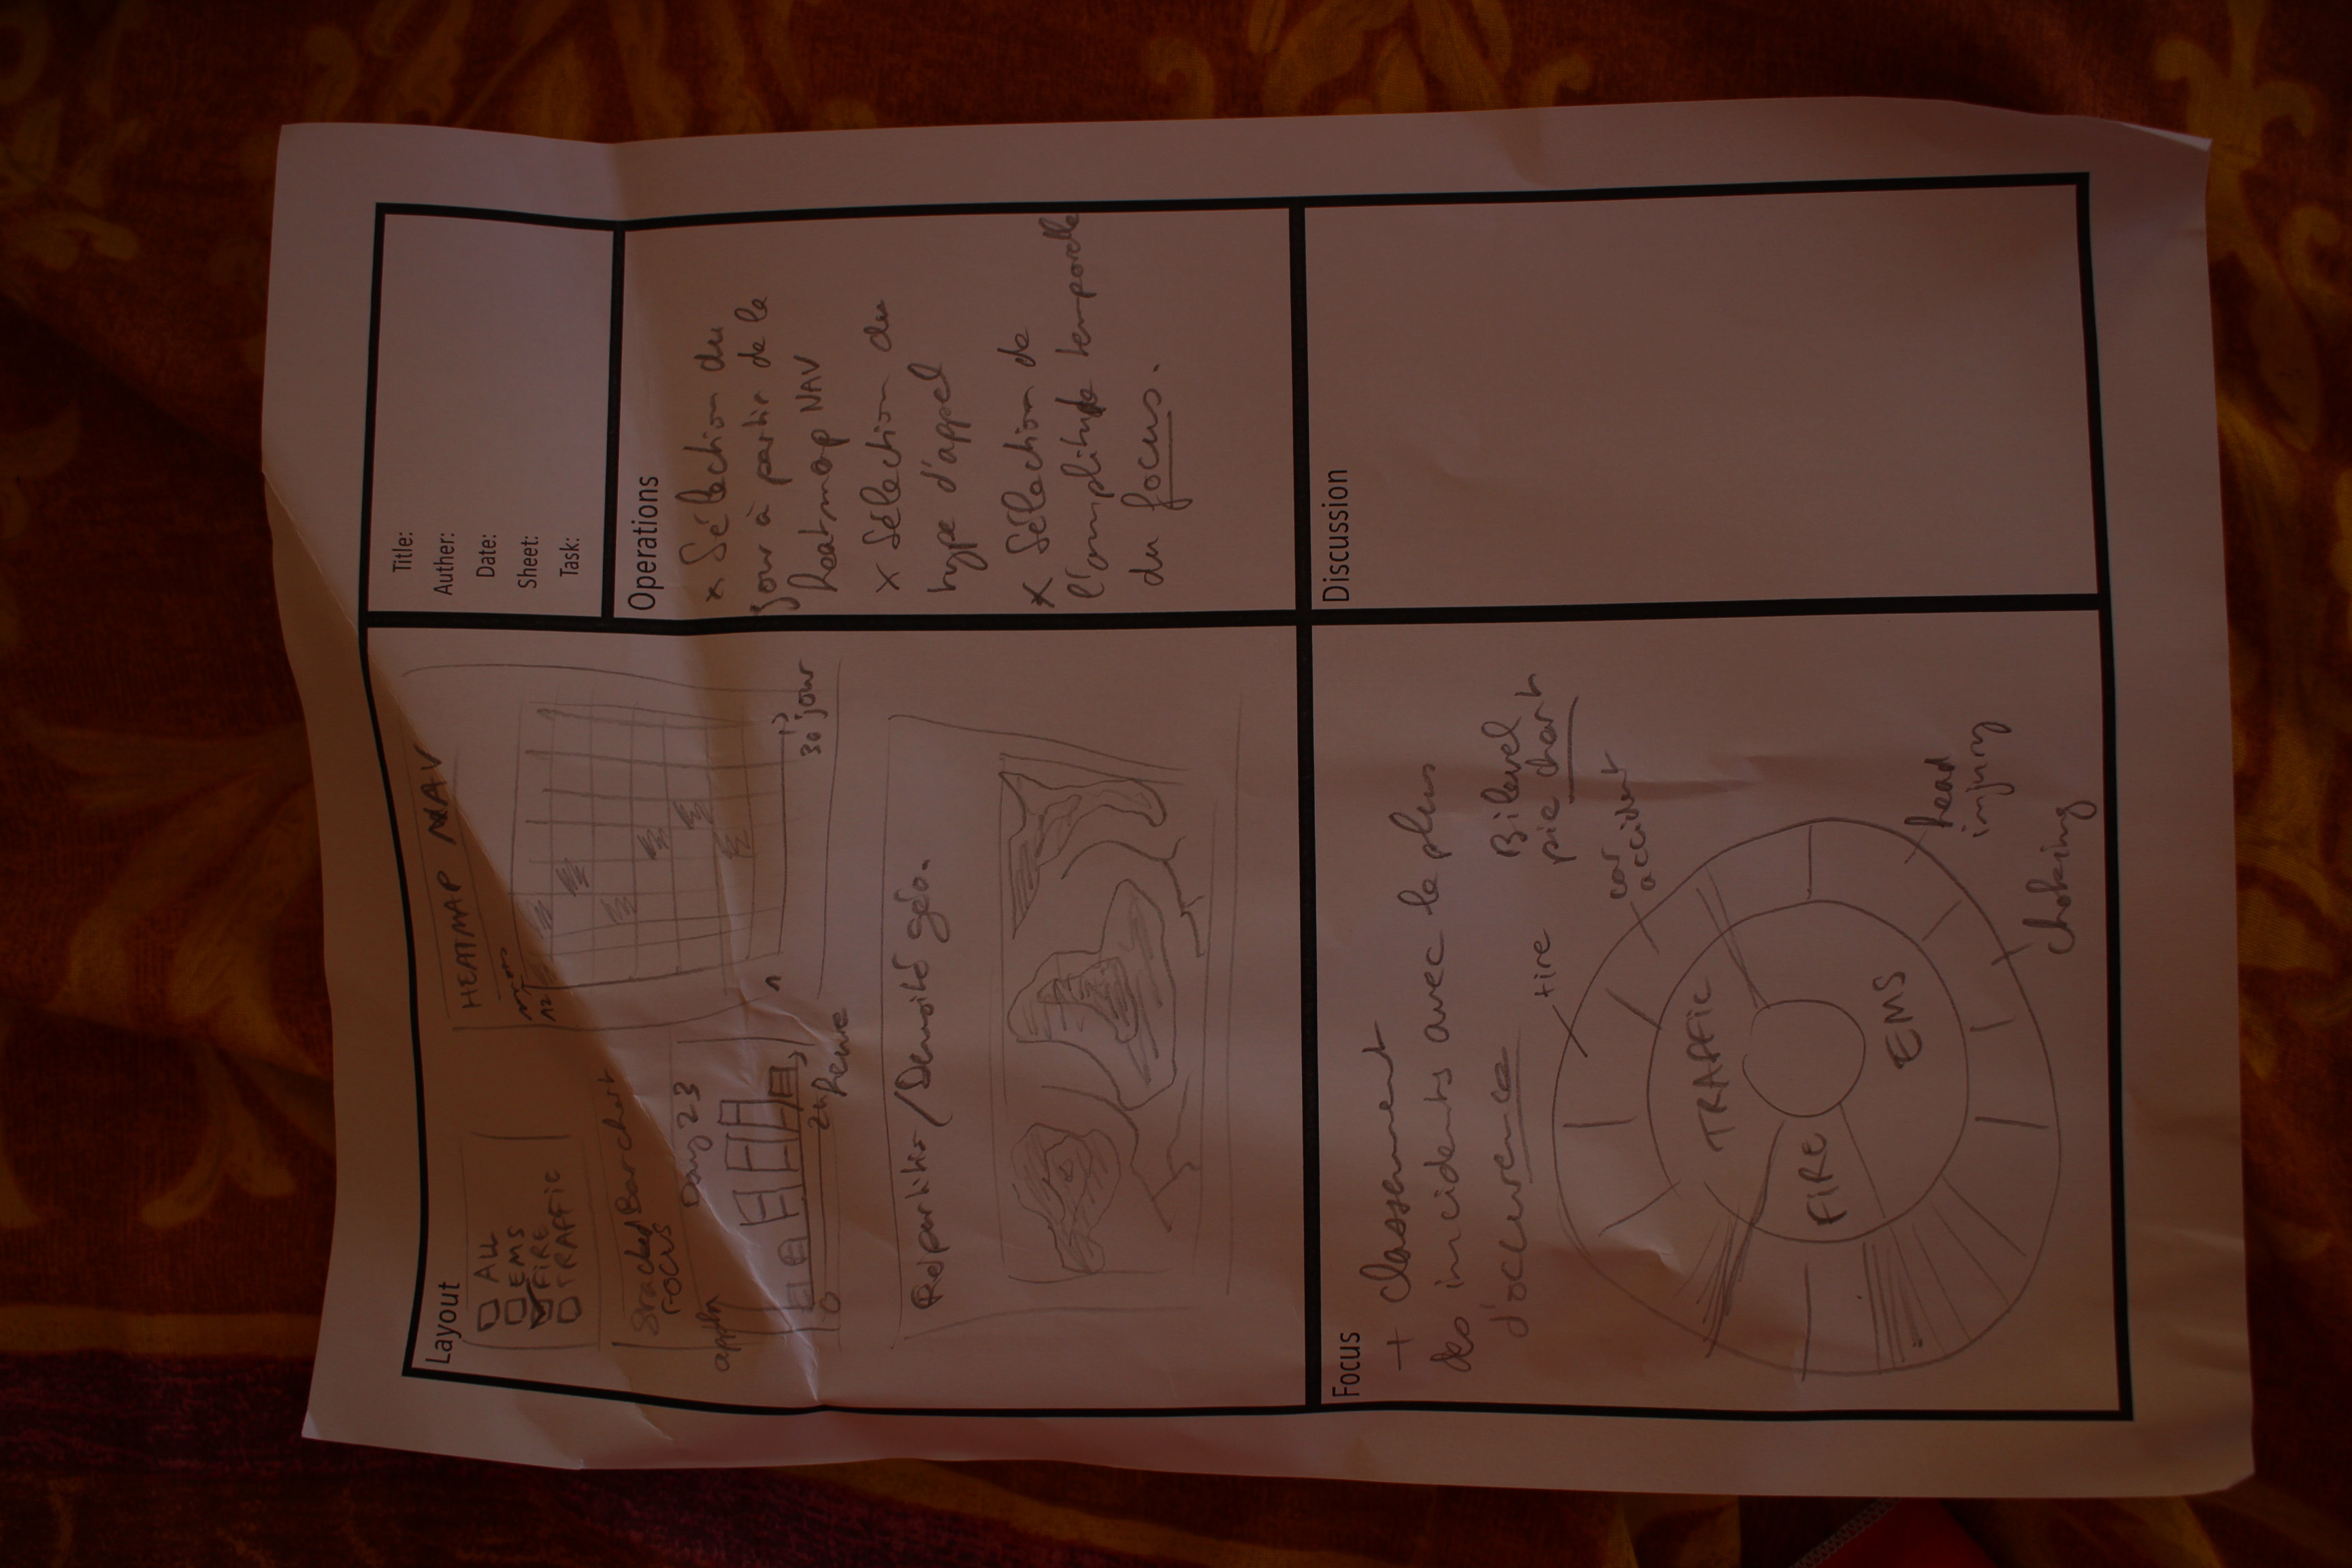 Layout
ALL
EMS
FIRE
TRAFFIC
HEATMAP NAV
mois
12
1
30 jour
Stacked Bar chart
FOCUS
Day 23
0
24 heure
Répartition/Densité géo.
Title:
Auther:
Date:
Sheet:
Task:
Operations
x Sélection du
jour à partir de la
heatmap NAV
x Sélection du
type d'appel
x Sélection de
l'amplitude temporelle
du focus.
Focus
+ classement
des incidents avec le plus
d'occurence
Bilevel
pie chart
car
accident
TRAFFIC
FIRE
EMS
head
injury
choking
Discussion